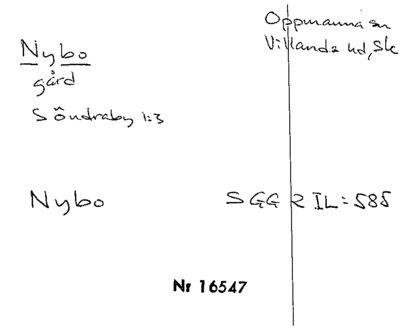 Oppmanna sn
Villands hd, Sk
Nybo
gård
Söndraby 1:3
Nybo SGG 2 IL = 585
Nr 16547